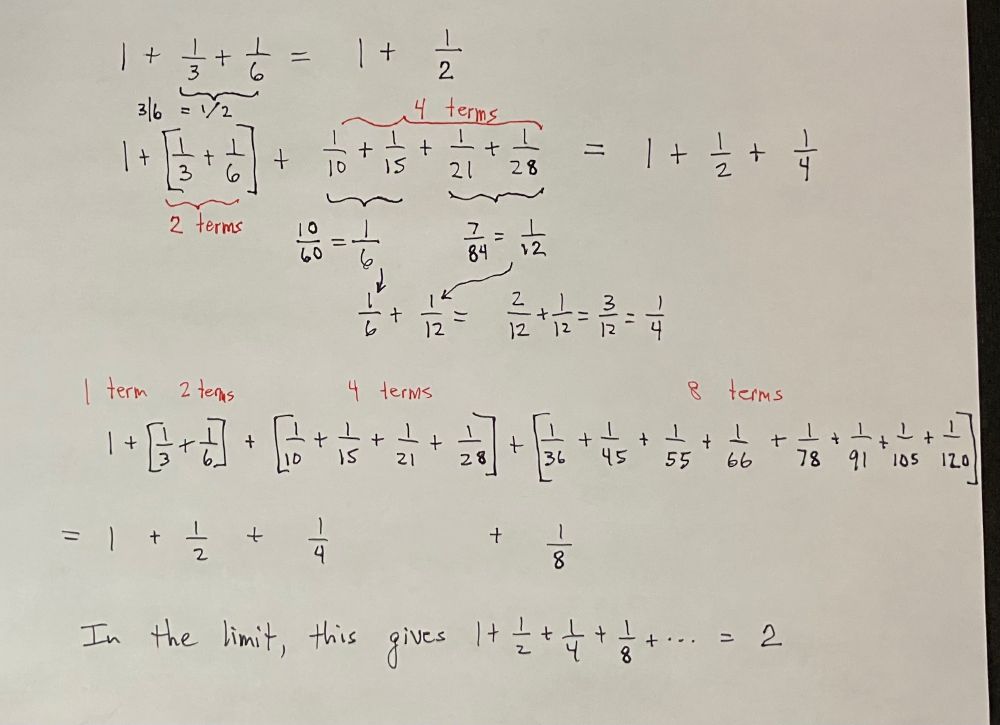 1 + 1/3 + 1/6 = 1 + 1/2
3/6 = 1/2
4 terms
1 + [1/3 + 1/6] + 1/10 + 1/15 + 1/21 + 1/28 = 1 + 1/2 + 1/4
2 terms
10/60 = 1/6 7/84 = 1/12
1/6 + 1/12 = 2/12 + 1/12 = 3/12 = 1/4
1 term 2 terms 4 terms 8 terms
1 + [1/3 + 1/6] + [1/10 + 1/15 + 1/21 + 1/28] + [1/36 + 1/45 + 1/55 + 1/66 + 1/78 + 1/91 + 1/105 + 1/120]
= 1 + 1/2 + 1/4 + 1/8
In the limit, this gives 1 + 1/2 + 1/4 + 1/8 + ... = 2